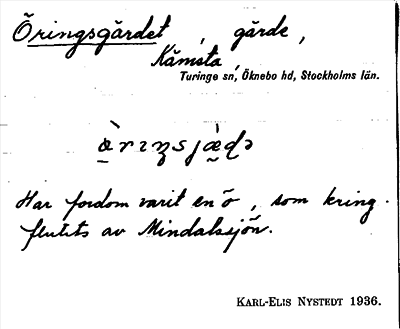 Öringsgärdet, gärde,
Kämsta,
Turinge sn, Öknebo hd, Stockholms län.
Har fordom varit en ö, som kring-
flutits av Mindalssjön.
KARL-ELIS NYSTEDT 1936.